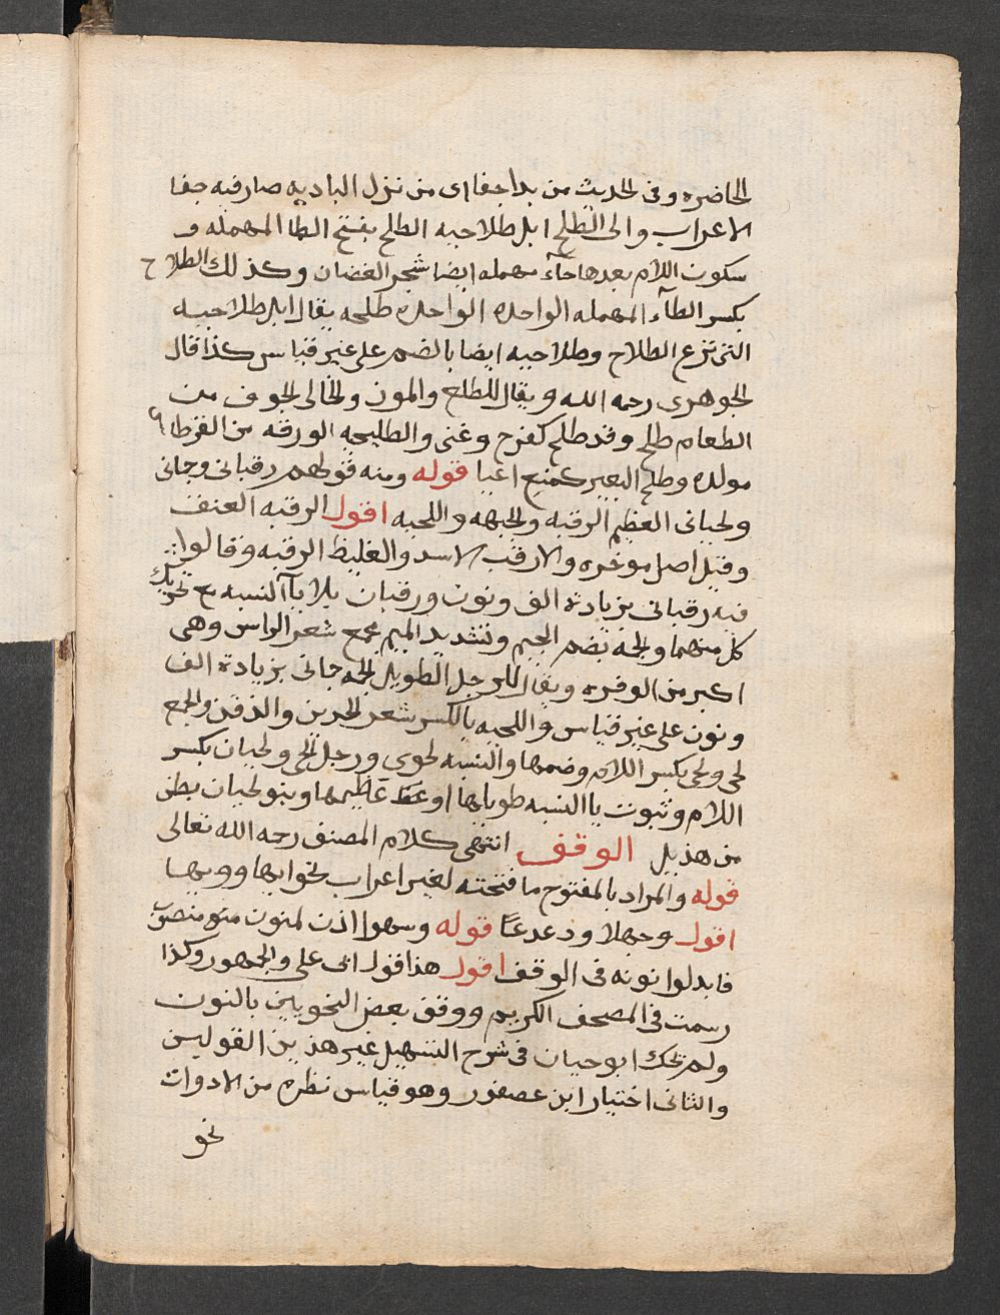 الحاضره وفى الحديث من بدا جفا اى من نزل الباديه صار فيه جفا
الاعراب والى الطلح ابل طلاحيه الطلح بفتح الطا المهمله و
سكون اللام بعدها حآء مهمله ايضا شجر الغضان وكذلك الطلاح
بكسر الطآء المهمله الواحده الواحده طلحه يقال ابل طلاحيه
التى ترع الطلاح وطلاحيه ايضا بالضم على غير قياس كذا قال
الجوهرى رحمه الله ويقال للطلع والمون والخالى الجوف من
الطعام طلح وقد طلح كفرح وغنى والطليحه الورقه من القرطاس
مولده وطلح البعير كمنع اعيا قوله ومنه قولهم رقبانى وجمانى
ولحيانى العظيم الرقبه والجبهه واللحيه اقول الرقبه العنف
وقيل اصل موخره والارقب الاسد والغليظ الرقبه وقالوا
فيه رقبانى بزيادة الف ونون ورقبان بلا يآ النسبه مع تحريك
كل منهما والجمه بضم الجيم وتشديد الميم مجمع شعر الراس وهى
اكبر من الوفره ويقال للرجل الطويل الجمه جمانى بزيادة الف
ونون على غير قياس واللحيه بالكسر شعر الخدين والذقن والجمع
لحى ولحى بكسر اللام وضمها والنسبه لحوى ورجل الحى ولحيان بكسر
اللام وثبوت يا النسبه طويلها او عظيمها وبنو لحيان بطن
من هذيل الوقف انتهى كلام المصنف رحمه الله تعالى
قوله والمراد بالمفتوح ما فتحته لغير اعراب نحو ايها وويها
اقول وحيهلا ودعدعًا قوله وسهوا اذن لمنون منصوب
فابدلوا نونه فى الوقف اقول هذا قول ابى على والجمهور وكذا
رسمت فى المصحف الكريم ووقف بعض النحويين بالنون
ولم يحك ابو حيان فى شرح التسهيل غير هذين القولين
والثانى اختيار ابن عصفور وهو قياس نظره من الادوات
نحو